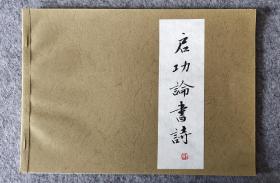 启功論書詩